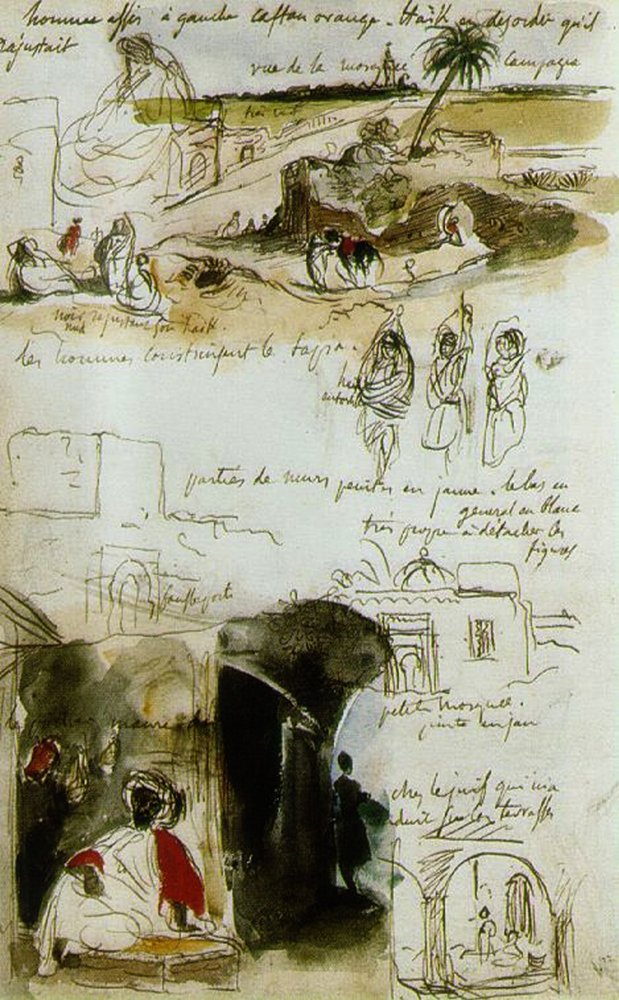 homme assis à gauche caftan orange. Haïk en désordre qu'il
rajustait
vue de la mosquée campagne
très vert
noir rajustant son haïk.
nud
les hommes construisant le
haïk
entortillé
parties de murs peintes en jaune. le bas en
général en blanc
très propre à détacher les
figures
fausse porte
le maure
petite mosquée.
peinte en jau
chez le juif qui
sur les terrasses